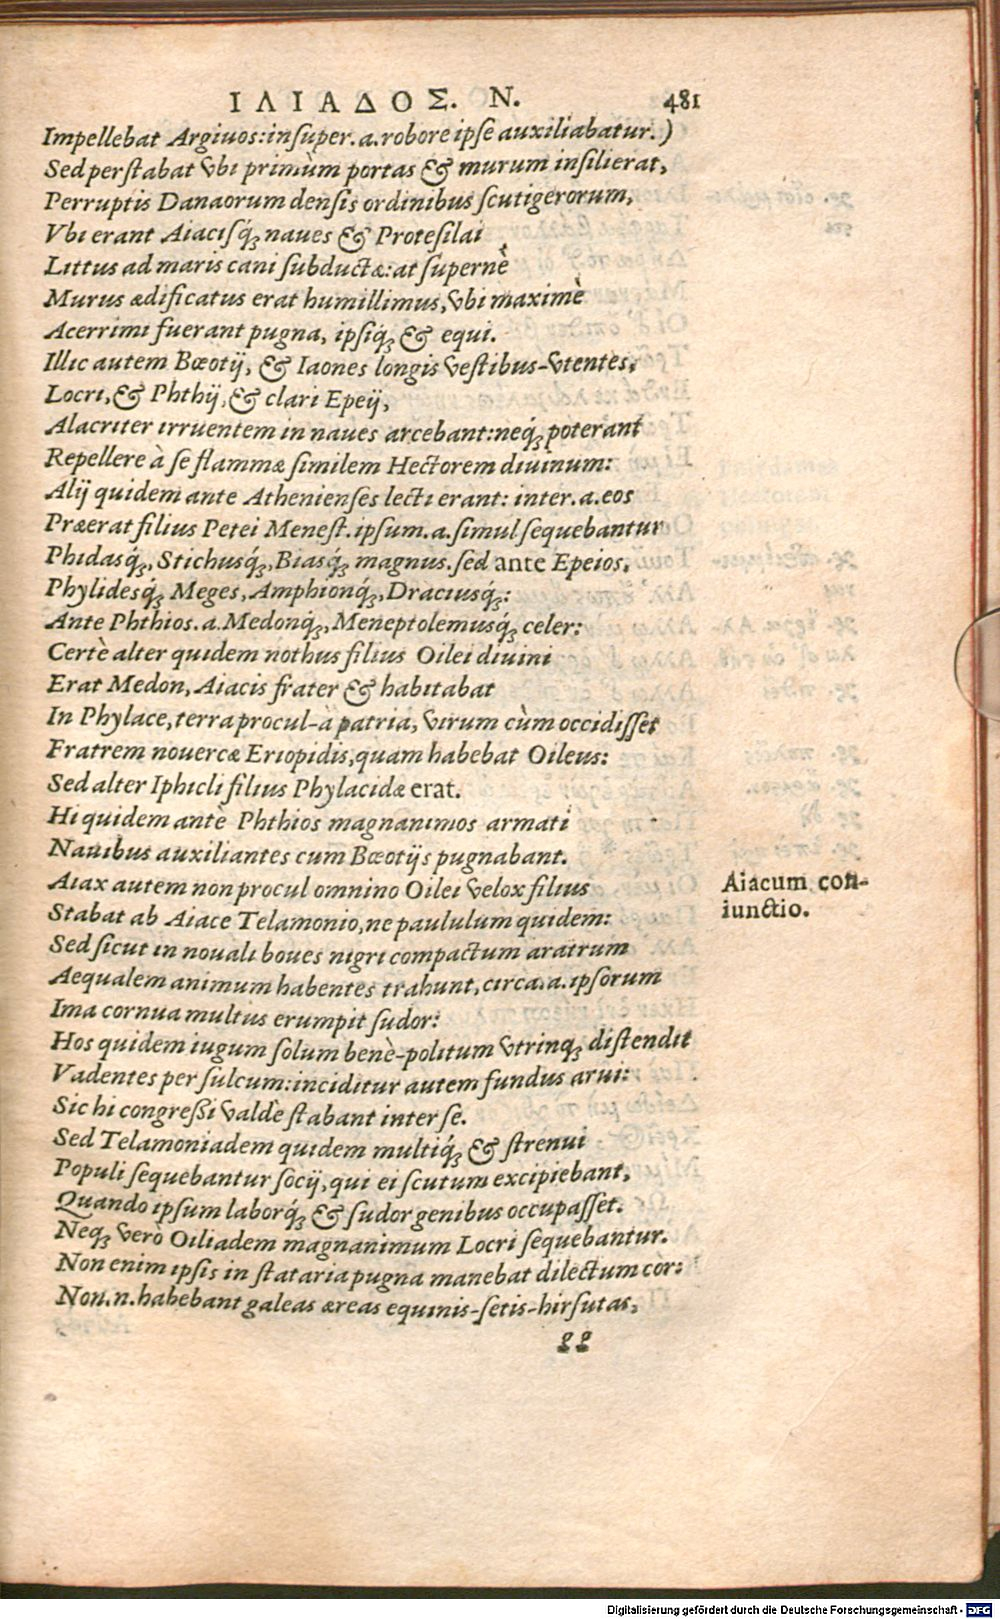 ΙΛΙΑΔΟΣ. Ν. 481
Impellebat Argiuos:insuper.a.robore ipse auxiliabatur.)
Sed perstabat vbi primùm portas & murum insilierat,
Perruptis Danaorum densis ordinibus scutigerorum,
Vbi erant Aiacisq́; naues & Protesilai
Littus ad maris cani subductæ:at supernè
Murus ædificatus erat humillimus, vbi maximè
Acerrimi fuerant pugna, ipsiq́; & equi.
Illic autem Bœotij, & Iaones longis vestibus-vtentes,
Locri, & Phthij, & clari Epeij,
Alacriter irruentem in naues arcebant:neq́; poterant
Repellere à se flammæ similem Hectorem diuinum:
Alij quidem ante Athenienses lecti erant: inter.a.eos
Præerat filius Petei Menest.ipsum.a.simul sequebantur
Phidasq́;, Stichusq́;, Biasq́; magnus.sed ante Epeios,
Phylidesq́; Meges, Amphionq́;, Draciusq́;:
Ante Phthios.a.Medonq́;, Meneptolemusq́; celer:
Certè alter quidem nothus filius Oilei diuini
Erat Medon, Aiacis frater & habitabat
In Phylace, terra procul-à patria, virum cùm occidisset
Fratrem nouercæ Eriopidis, quam habebat Oileus:
Sed alter Iphicli filius Phylacidæ erat.
Hi quidem antè Phthios magnanimos armati
Nauibus auxiliantes cum Bœotijs pugnabant.
Aiax autem non procul omnino Oilei velox filius
Stabat ab Aiace Telamonio, ne paululum quidem:
Sed sicut in nouali boues nigri compactum aratrum
Aequalem animum habentes trahunt, circa.a.ipsorum
Ima cornua multus erumpit sudor:
Hos quidem iugum solum benè-politum vtrinq; distendit
Vadentes per sulcum:inciditur autem fundus arui:
Sic hi congressi valdè stabant inter se.
Sed Telamoniadem quidem multiq́; & strenui
Populi sequebantur socij, qui ei scutum excipiebant,
Quando ipsum laborq́; & sudor genibus occupasset.
Neq; verò Oiliadem magnanimum Locri sequebantur.
Non enim ipsis in stataria pugna manebat dilectum cor:
Non.n.habebant galeas æreas equinis-setis-hirsutas,
Aiacum con-
iunctio.
Digitalisierung gefördert durch die Deutsche Forschungsgemeinschaft - DFG